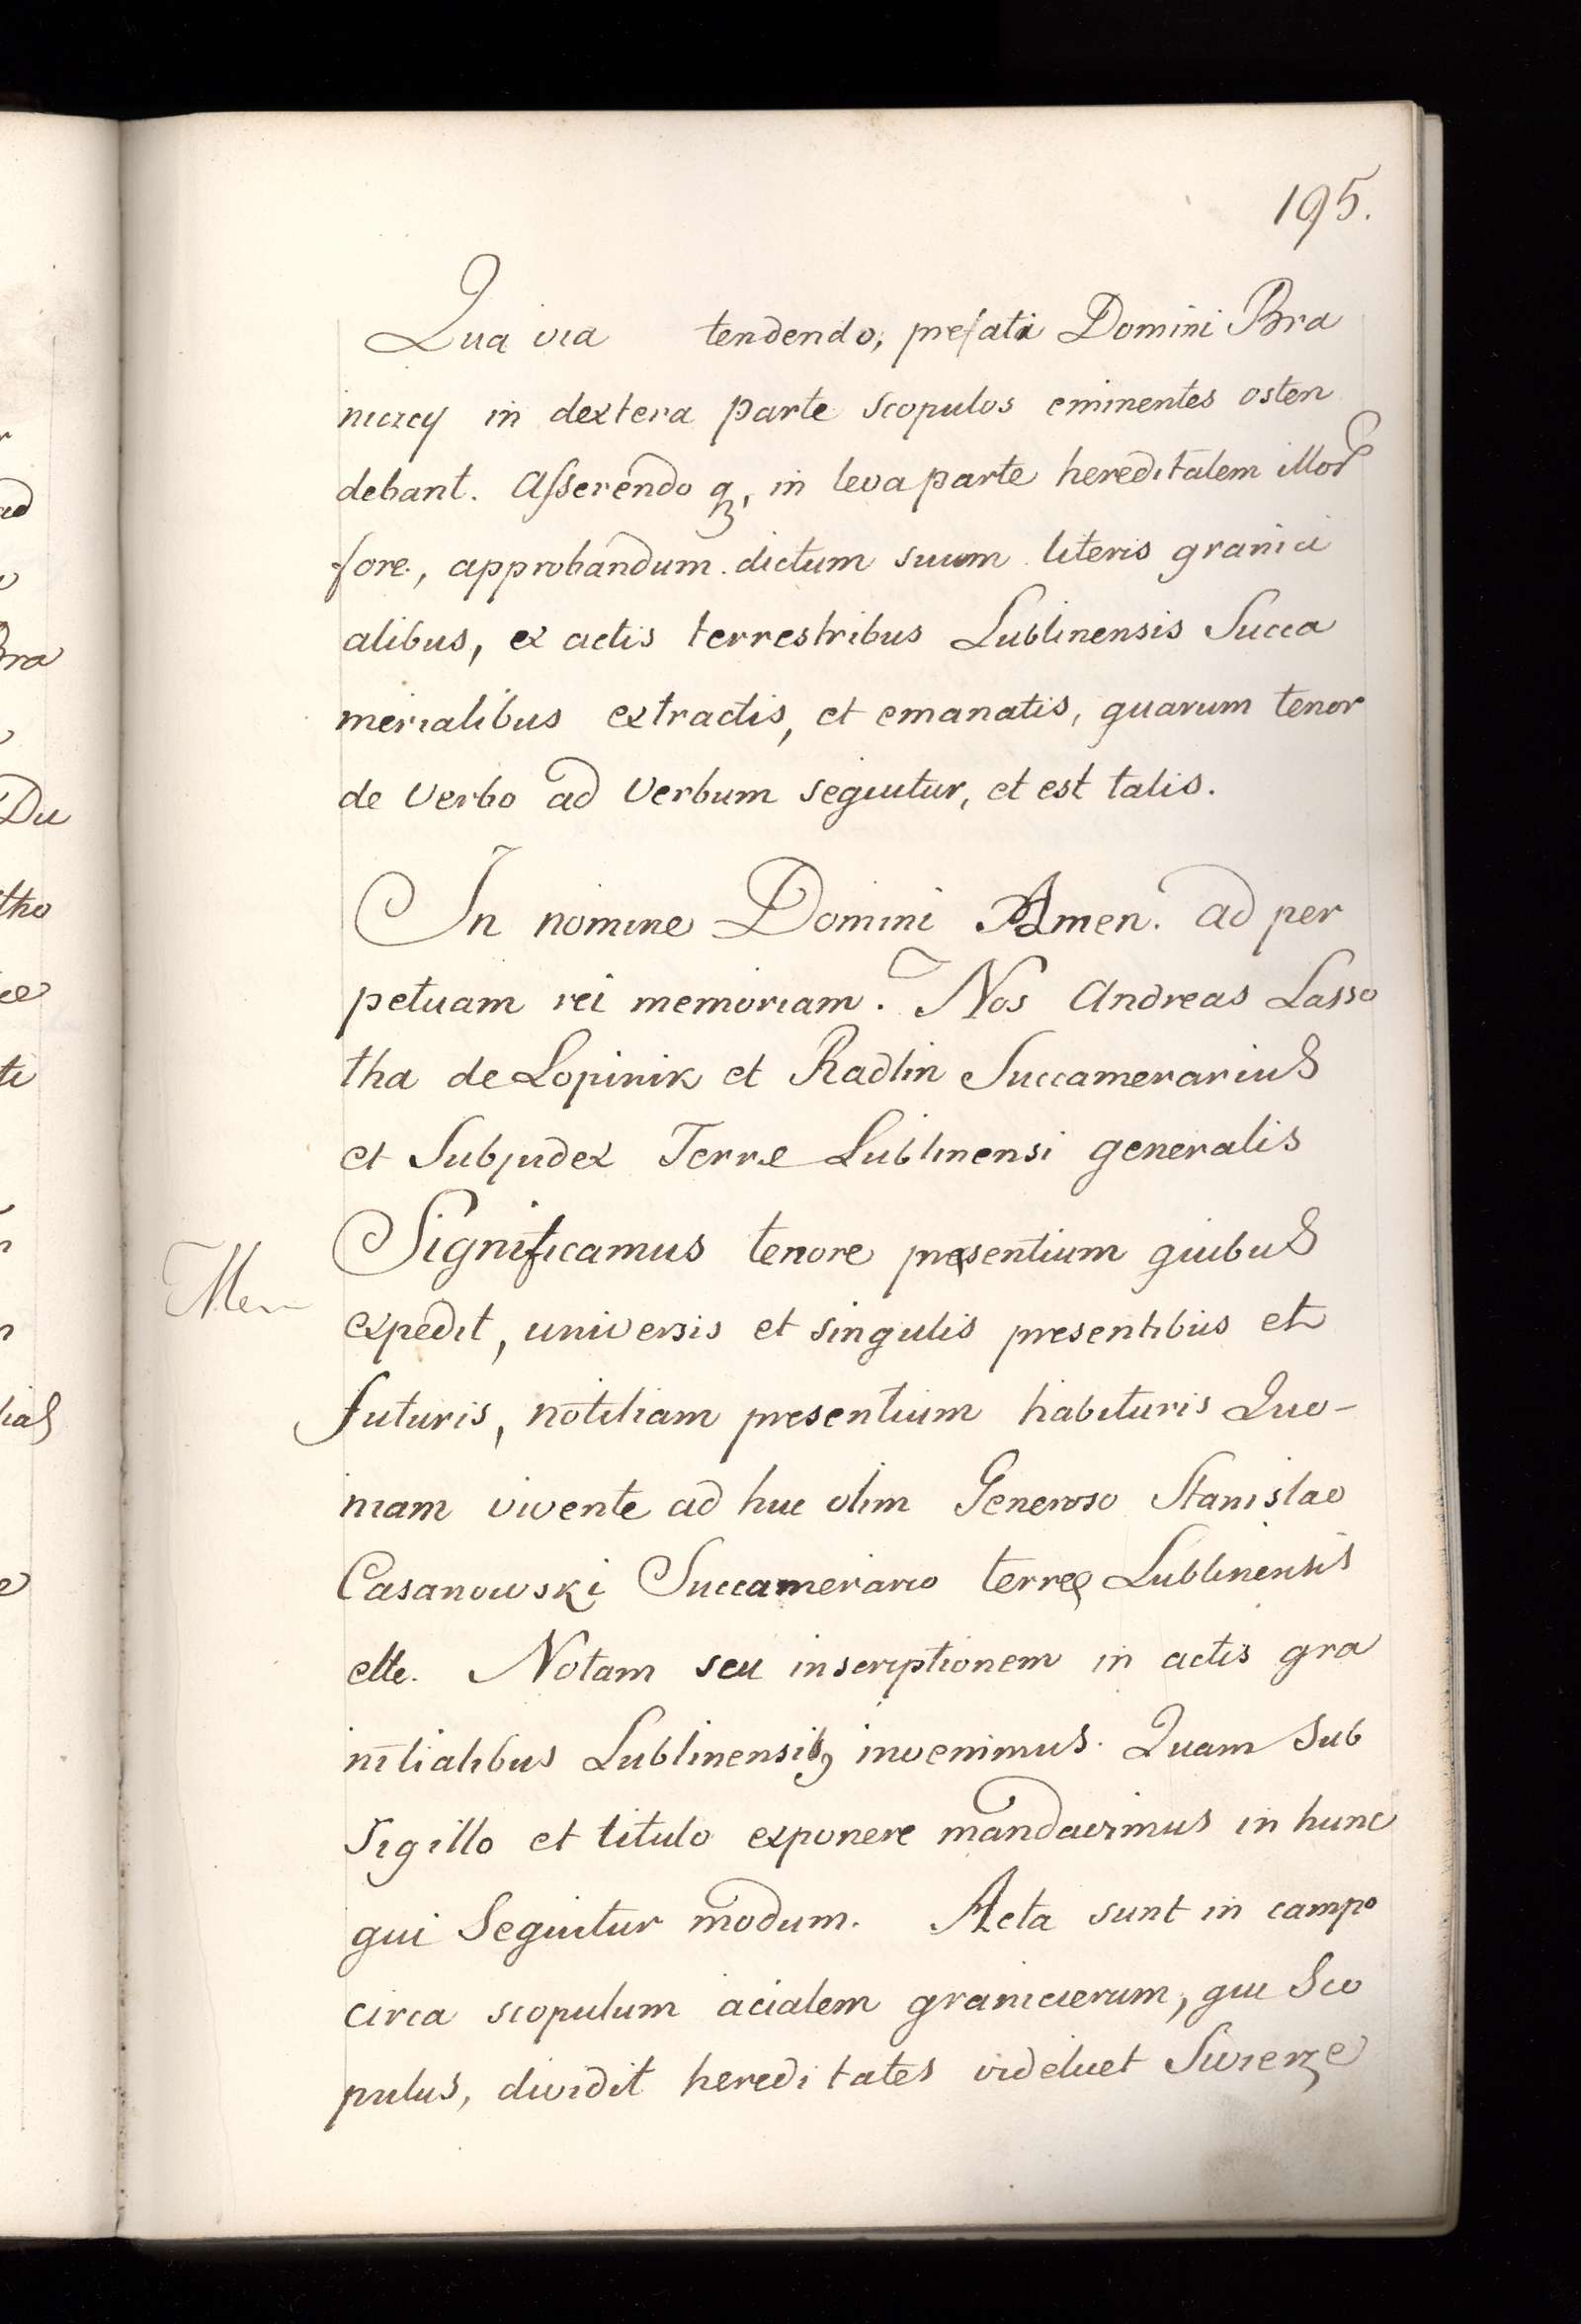 195.
Qua via tendendo, prefati Domini Bra
niczcy in dextera parte scopulos eminentes osten
debant. Asserendo qz, in leva parte hereditalem illor
fore, approbandum dictum suum literis granici
alibus, ex actis terrestribus Lublinensis Succa
merialibus extractis, et emanatis, quarum tenor
de verbo ad verbum sequitur, et est talis.
In nomine Domini Amen. ad per
petuam rei memoriam. Nos Andreas Lasso
tha de Lopinik et Radlin Succamerarius
et Subjudex Terre Lublinensi generalis
Significamus tenore presentium quibus
expedit, universis et singulis presentibus et
futuris, notitiam presentium habituris Quo-
niam vivente ad huc olim Generoso Stanislao
Casanowski Succamerario terre Lublinensis
ette. Notam seu inscriptionem in actis gra
nitialibus Lublinensib9 invenimus. Quam Sub
sigillo et titulo exponere mandavimus in hunc
qui Sequitur modum. Acta sunt in campo
circa scopulum acialem granicierum, qui Sco
pulus, dividit hereditates videlicet Swierze